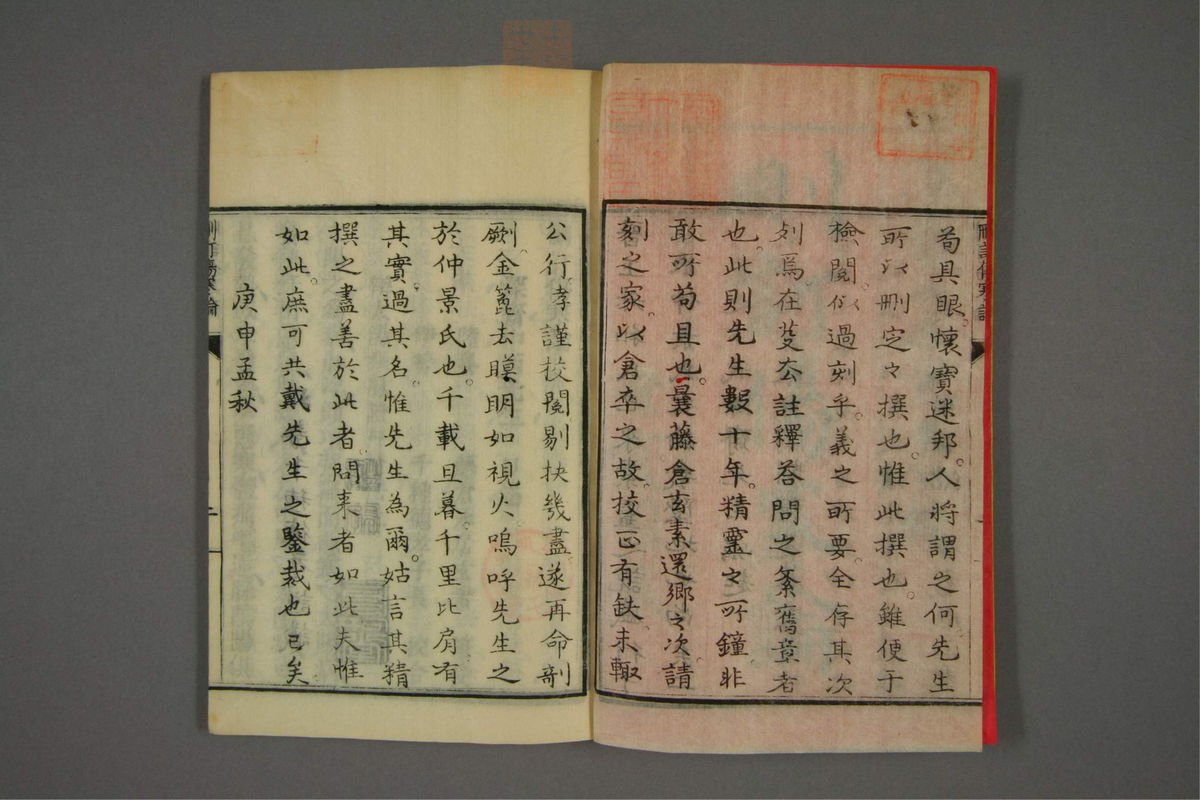 苟具眼懷寶迷邦人將謂之何先生
所以刪定之撰也惟此撰也雖便于
檢閱似過刻乎義之所要全存其次
列焉在芟太註釋荅問之紊舊章者
也此則先生數十年精靈之所鐘非
敢所苟且也曩藤倉玄素還鄉之次請
刻之家以倉卒之故挍正有缺未輙
公行孝謹挍閱剔抉幾盡遂再命剞
劂金篦去瞙明如視火嗚呼先生之
於仲景氏也千載旦暮千里比肩有
其實過其名惟先生為爾姑言其精
撰之盡善於此者問耒者如此夫惟
如此庶可共戴先生之鑒裁也已矣
庚申孟秋
刪訂傷寒論
二